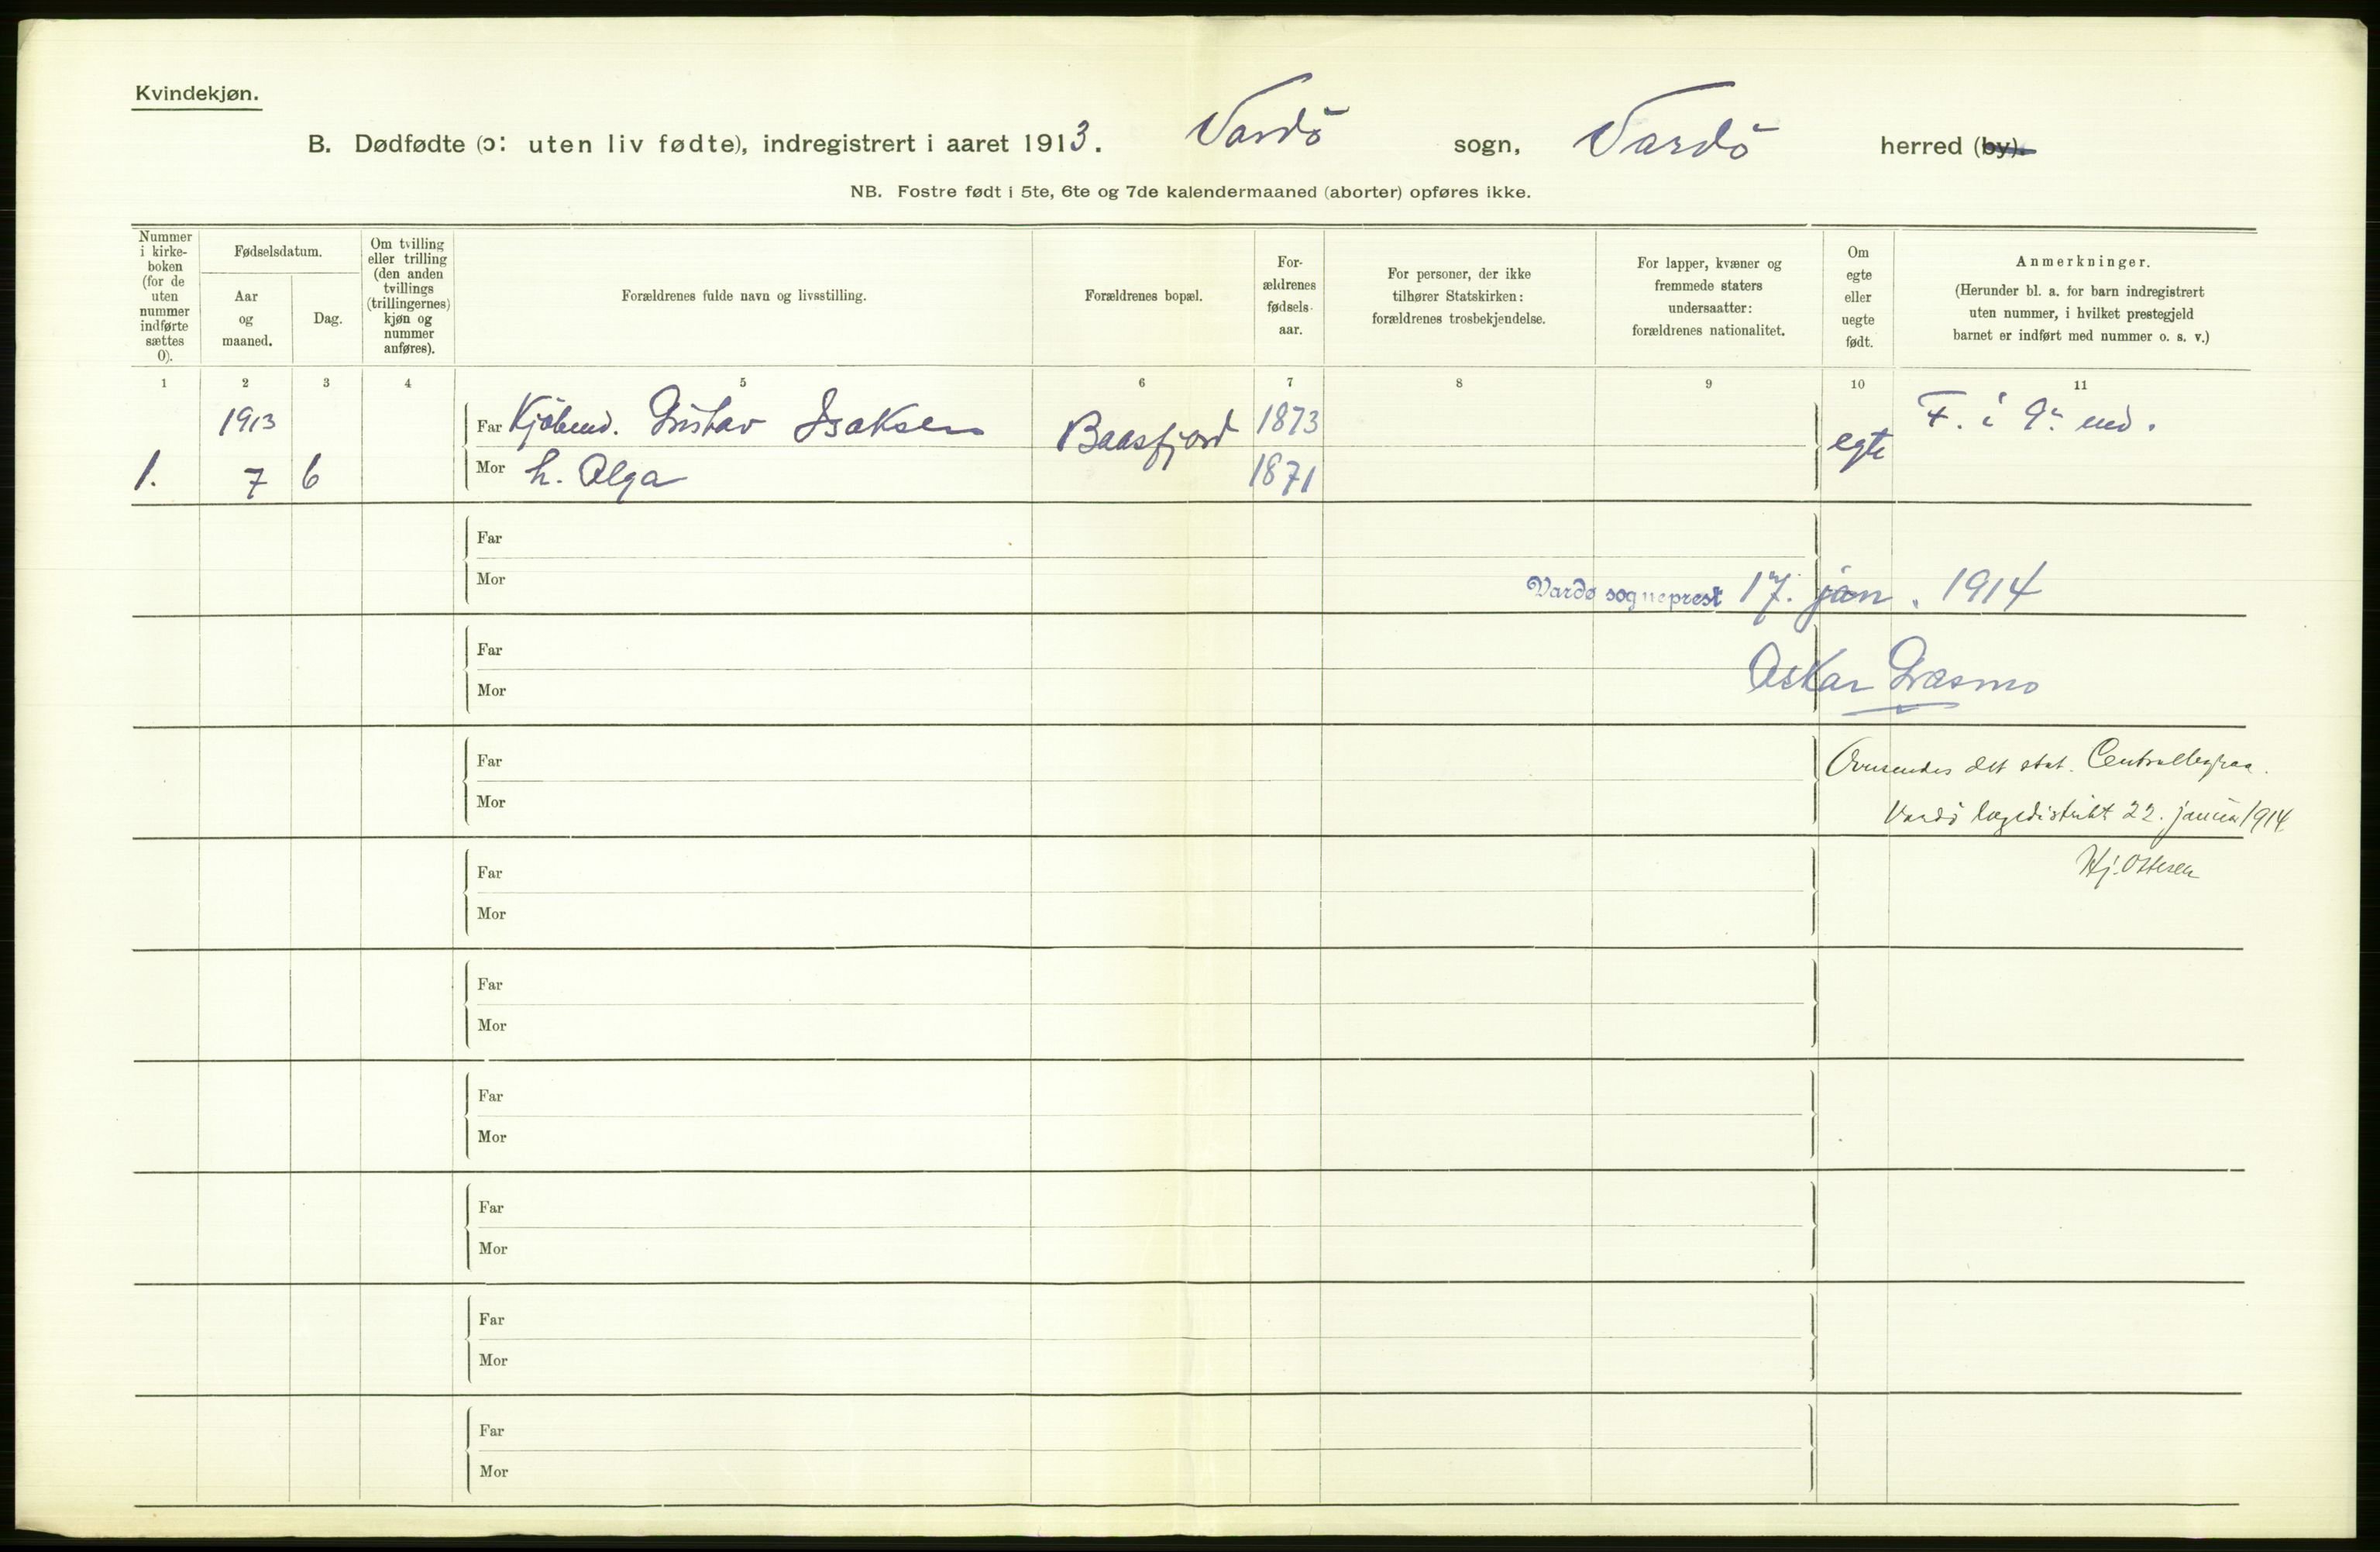 Kvindekjøn.
B. Dødfødte (ɔ: uten liv fødte), indregistrert i aaret 1913. Vardö sogn, Vardö herred (by).
NB. Fostre født i 5te, 6te og 7de kalendermaaned (aborter) opføres ikke.
Nummer
i kirke-
boken
(for de
uten
nummer
indførte
sættes
0).
Fødselsdatum.
Aar
og
maaned.
Dag.
Om tvilling
eller trilling
(den anden
tvillings
(trillingernes)
kjøn og
nummer
anføres).
Forældrenes fulde navn og livsstilling.
Forældrenes bopæl.
For-
ældrenes
fødsels-
aar.
For personer, der ikke
tilhører Statskirken:
forældrenes trosbekjendelse.
For lapper, kvæner og
fremmede staters
undersaatter:
forældrenes nationalitet.
Om
egte
eller
uegte
født.
Anmerkninger.
(Herunder bl. a. for barn indregistrert
uten nummer, i hvilket prestegjeld
barnet er indført med nummer o. s. v.)
1 2 3 4 5 6 7 8 9 10 11
1913 Far Kjöbmd. Gustav Isaksen Baasfjord 1873 egte F. i 9. md.
1. 7 6 Mor h. Olga 1871
Far
Mor
Vardø sogneprest 17. jan. 1914
Far
Mor
Oskar Græsmo
Far
Oversendes det stat. Centralbyraa.
Mor
Vardö lægedistrikt 22. januar 1914
Hj. Ottesen
Far
Mor
Far
Mor
Far
Mor
Far
Mor
Far
Mor
Far
Mor